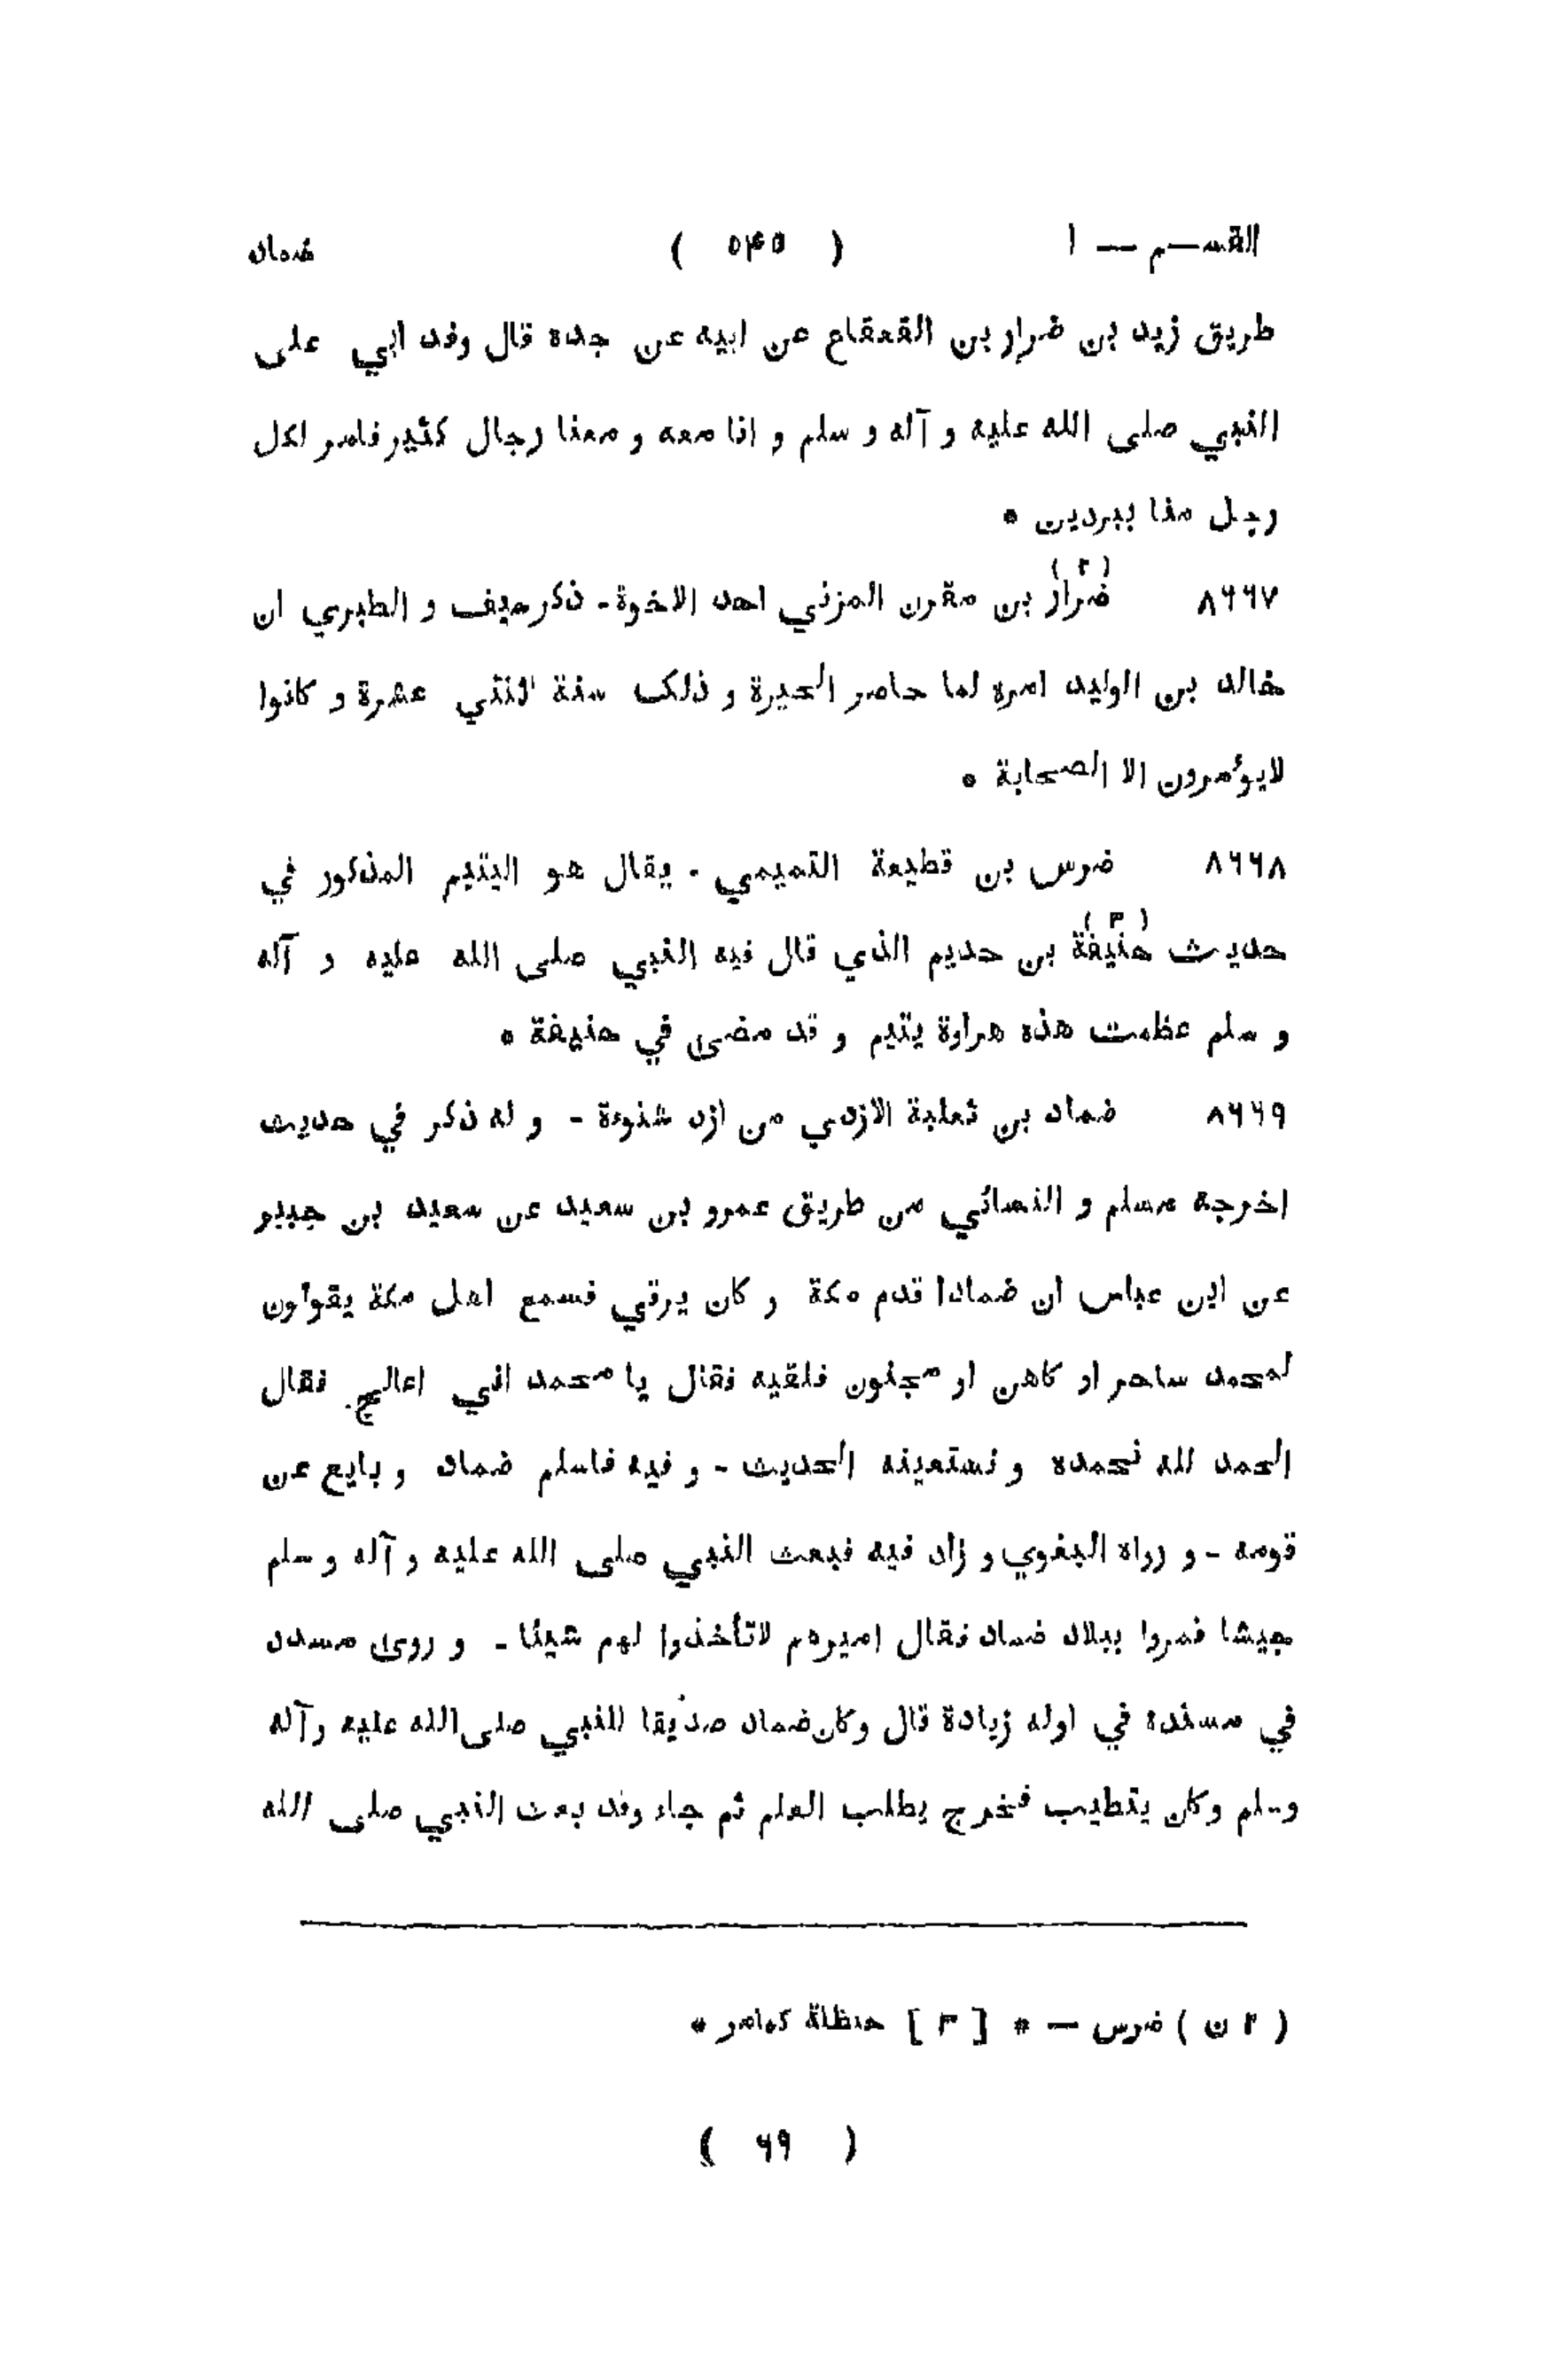 القســم — ا ( ٥۴٥ ) ضماد
طريق زيد بن ضرار بن القعقاع عن ابيه عن جده قال وفد ابي على
النبي صلى الله عليه و آله و سلم و انا معه و معنا رجال كثير فامر لكل
رجل منا ببردين *
٨٦٦٧ ضرار (٢) بن مقرن المزني احد الاخوة - ذكر سيف و الطبري ان
خالد بن الوليد امره لما حاصر الحيرة و ذلك سنة اثنتي عشرة و كانوا
لايؤمرون الا الصحابة *
٨٦٦٨ ضرس بن قطيعة التميمي - يقال هو اليتيم المذكور في
حديث حنيفة (٣) بن حديم الذي قال فيه النبي صلى الله عليه و آله
و سلم عظمت هذه هراوة يتيم و قد مضى في حنيفة *
٨٦٦٩ ضماد بن ثعلبة الازدي من ازد شنوءة - و له ذكر في حديث
اخرجه مسلم و النسائي من طريق عمرو بن سعيد عن سعيد بن جبير
عن ابن عباس ان ضمادا قدم مكة و كان يرقي فسمع اهل مكة يقولون
لمحمد ساحر او كاهن او مجنون فلقيه فقال يا محمد اني اعالج فقال
الحمد لله نحمده و نستعينه الحديث - و فيه فاسلم ضماد و بايع عن
قومه - و رواه البغوي و زاد فيه فبعث النبي صلى الله عليه و آله و سلم
جيشا فمروا ببلاد ضماد فقال اميرهم لاتأخذوا لهم شيئا - و روى مسدد
في مسنده في اوله زيادة قال وكان ضماد صديقا للنبي صلى الله عليه و آله
وسلم وكان يتطيب فخرج يطلب العلم ثم جاء وقد بعث النبي صلى الله
( ٢ ن ) ضرس — * [ ٣ ] حنظلة كمامر *
( ٦٩ )